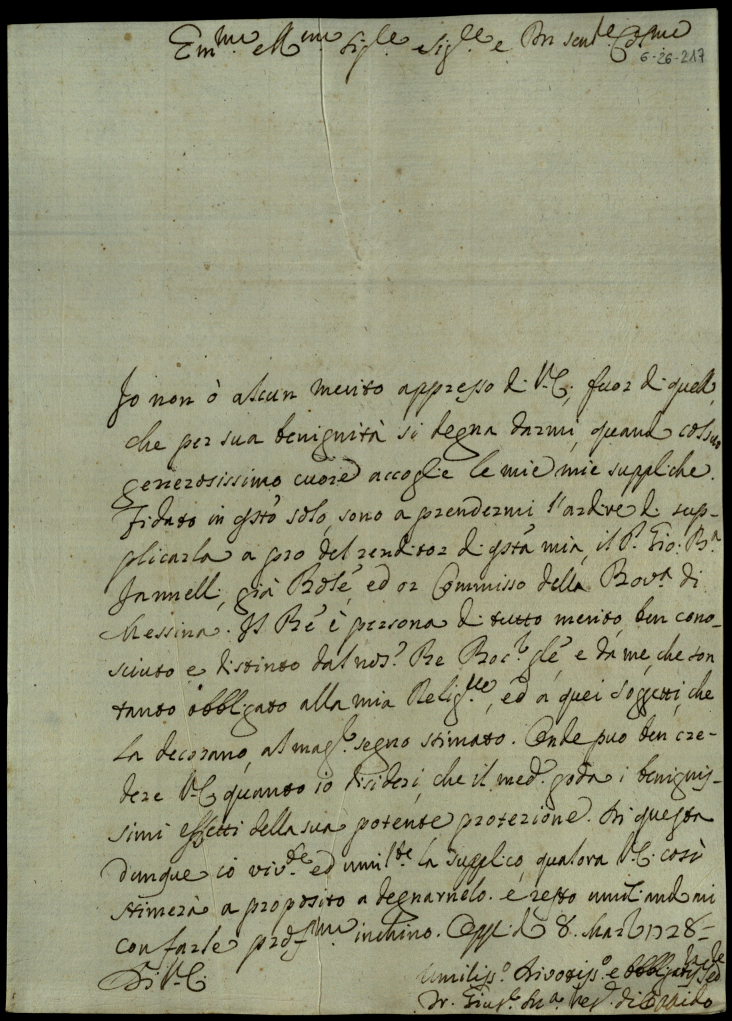 Em.mo e R.mo Sig.re Sig.re e P.ron sem.e Col.mo
6-26-217
Io non ò alcun merito appresso di V.E, fuor di quell,
che per sua benignità si degna darmi, quand col suo
generosissimo cuore accoglie le mie mie suppliche.
Fidato in qsto solo, sono a prendermi l'ardire di sup-
plicarla a pro del renditor di qsta mia, il P. Gio: Ba
Jannell, già Prole, ed or Commisso della Prov.a di
Messina. Il Pre è persona di tutto merito, ben cono-
sciuto e distinto dal nos.o Pre Proc.r Gle, e da me, che son
tanto obbligato alla mia Relig.ne, ed a quei soggetti, che
la decorano, al mag.r segno stimato. Onde può ben cre-
dere V.E quanto io disideri, che il med.o goda i benignis-
simi effetti della sua potente protezione. Di questa
dunque io viv.te ed umil.te la supplico, qualora V.E. così
stimerà a proposito a degnarnelo. e resto umiliandomi
con farle prof.mo inchino. 8. Mar. 1728-
Di V.E.
Umiliss.o Divotiss.o e Obbligatiss.o
Fr. Gius. M.a Ves.o di